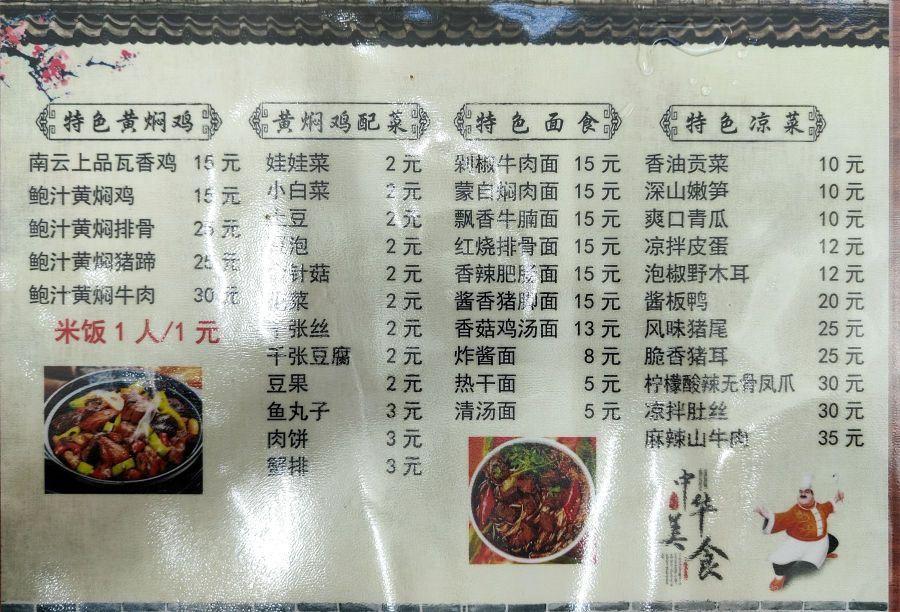 特色黄焖鸡
南云上品瓦香鸡 15 元
鲍汁黄焖鸡 15 元
鲍汁黄焖排骨 25 元
鲍汁黄焖猪蹄 25 元
鲍汁黄焖牛肉 30 元
米饭1人/1元
黄焖鸡配菜
娃娃菜 2 元
小白菜 2 元
土豆 2 元
泡 2 元
针菇 2 元
菜 2 元
千张丝 2 元
千张豆腐 2 元
豆果 2 元
鱼丸子 3 元
肉饼 3 元
蟹排 3 元
特色面食
剁椒牛肉面 15 元
蒙自焖肉面 15 元
飘香牛腩面 15 元
红烧排骨面 15 元
香辣肥肠面 15 元
酱香猪脚面 15 元
香菇鸡汤面 13 元
炸酱面 8 元
热干面 5 元
清汤面 5 元
特色凉菜
香油贡菜 10 元
深山嫩笋 10 元
爽口青瓜 10 元
凉拌皮蛋 12 元
泡椒野木耳 12 元
酱板鸭 20 元
风味猪尾 25 元
脆香猪耳 25 元
柠檬酸辣无骨凤爪 30 元
凉拌肚丝 30 元
麻辣山牛肉 35 元
中华美食